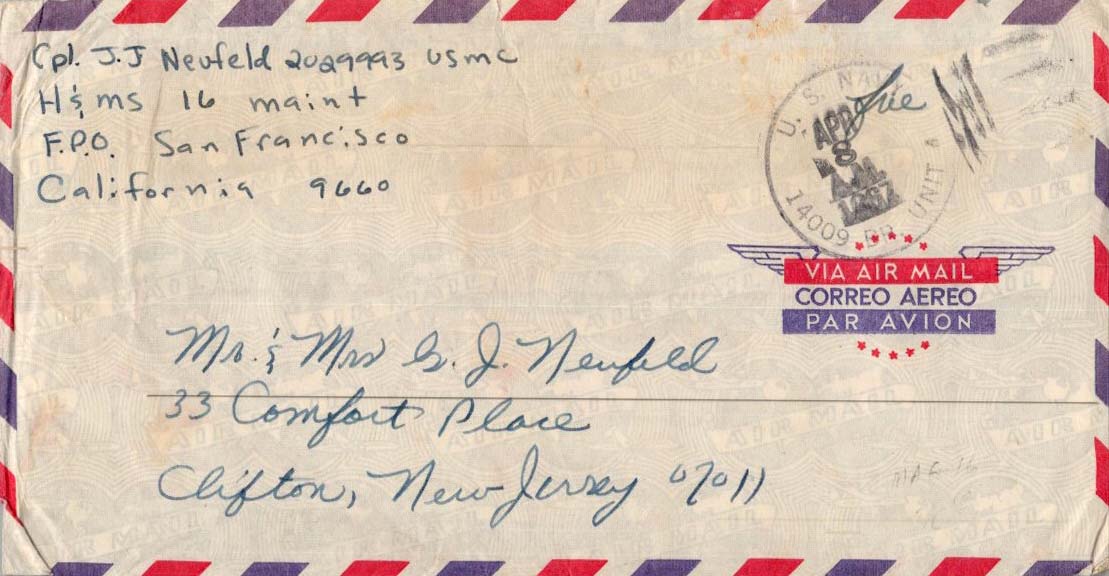 Cpl. J.J Neufeld 2029993 USMC
H & ms 16 maint
F.P.O. San Francisco
California 9660
Free
U. S. NAVY
APR
8
A.M.
14009 BR. UNIT
VIA AIR MAIL
CORREO AEREO
PAR AVION
Mr. & Mrs G. J. Neufeld
33 Comfort Place
Clifton, New Jersey 07011
MAG 16